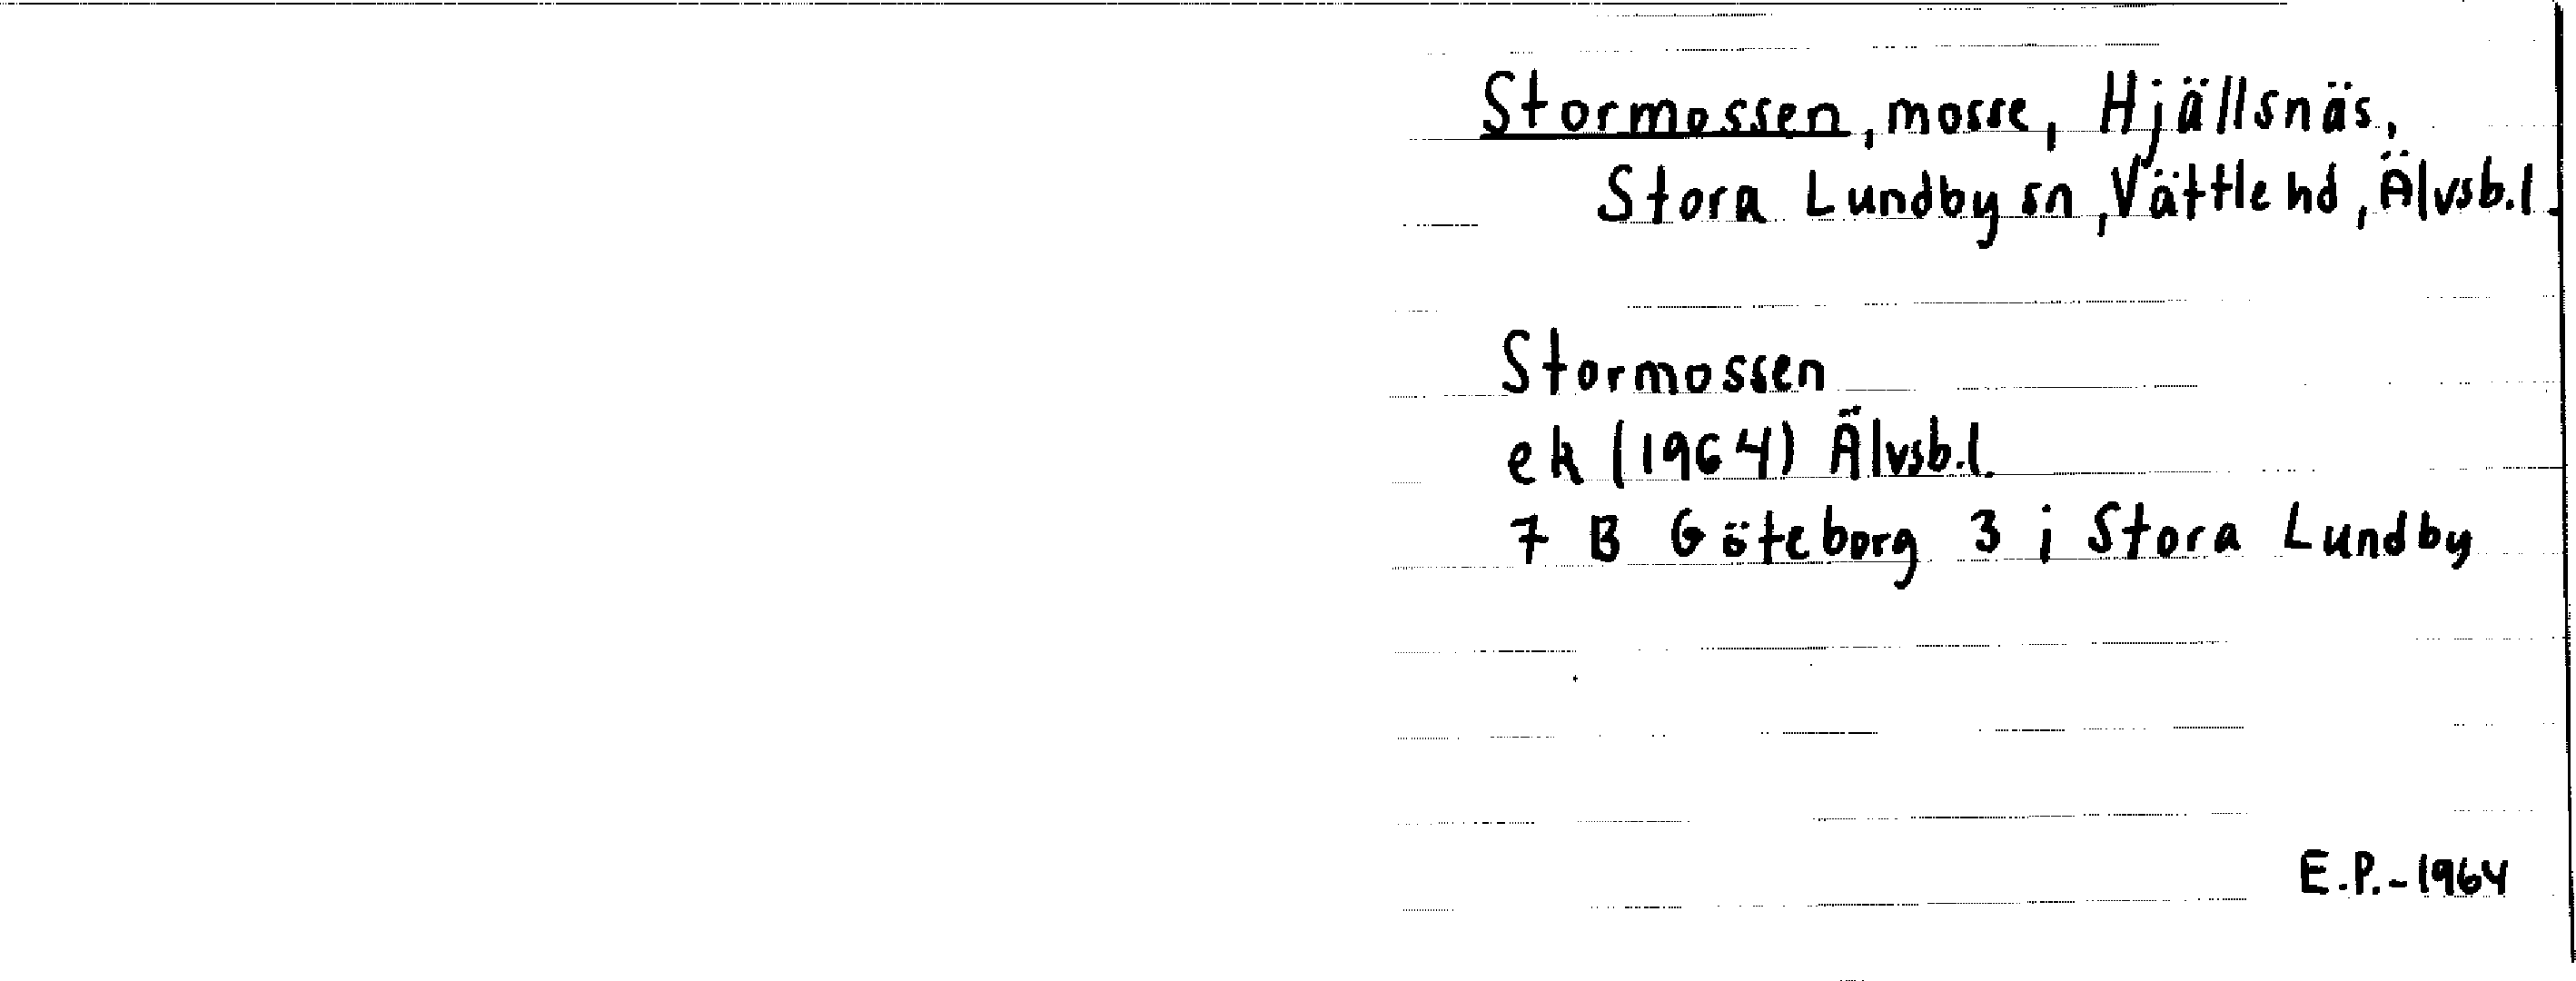 Stormossen, mosse, Hjällsnäs,
Stora Lundby sn, Vättle hd, Älvsb.l.
Stormossen
ek (1964) Älvsb.l.
7 B Göteborg 3 i Stora Lundby
E.P.-1964